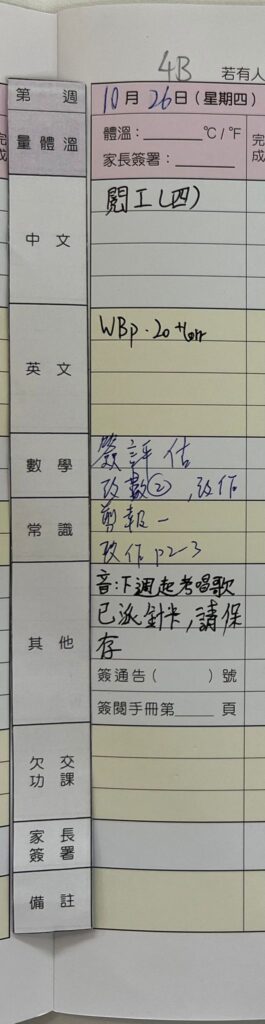 4B 若有人
第 週 10月26日(星期四)
量體溫 體溫：______°C/°F
家長簽署：______
完成
中文 閱工(四)
英文 WBp.20
數學 簽評估
改數②,改作
常識 剪報一
改作p2-3
其他 音:下週起考唱歌
已派針卡,請保
存
簽通告( )號
簽閱手冊第____頁
欠交功課
家長簽署
備註